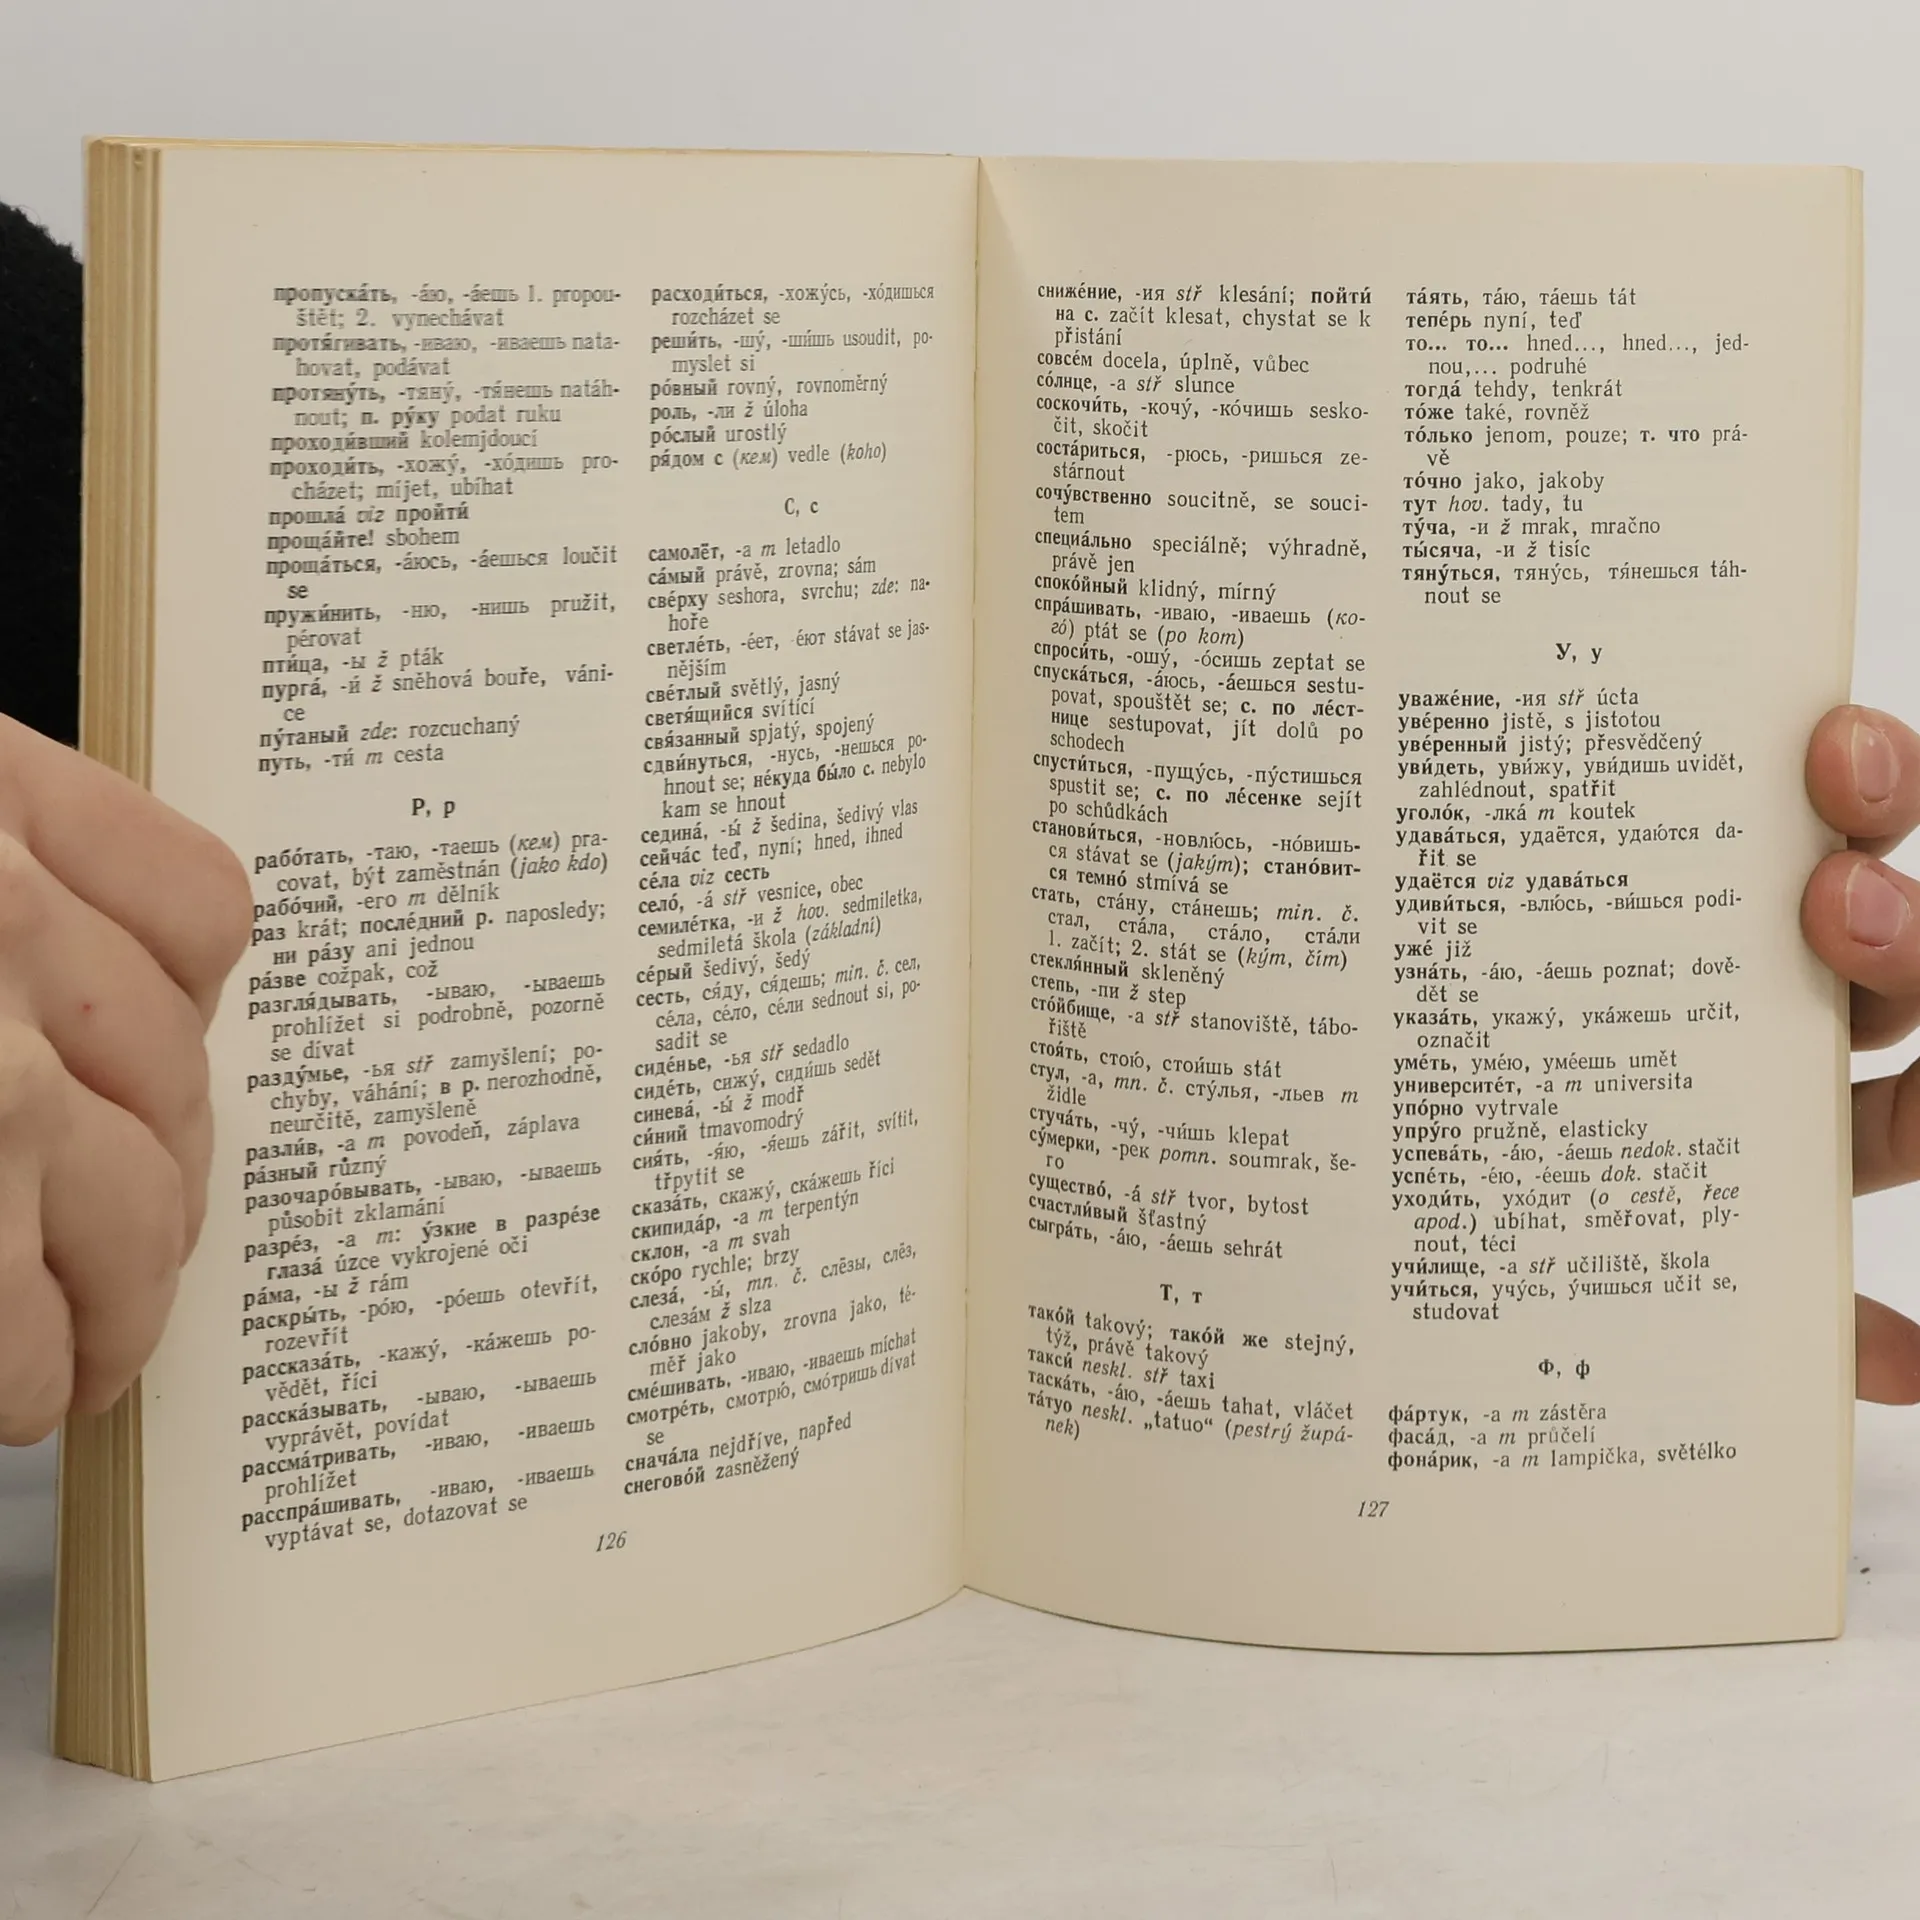 пропуска́ть, -а́ю, -а́ешь 1. propou-
štět; 2. vynechávat
протя́гивать, -иваю, -иваешь nata-
hovat, podávat
протяну́ть, -тяну́, -тя́нешь natáh-
nout; п. ру́ку podat ruku
проходи́вший kolemjdoucí
проходи́ть, -хожу́, -хо́дишь pro-
cházet; míjet, ubíhat
прошла́ viz пройти́
проща́йте! sbohem
проща́ться, -а́юсь, -а́ешься loučit
se
пружи́нить, -ню, -нишь pružit,
pérovat
пти́ца, -ы ž pták
пурга́, -и́ ž sněhová bouře, váni-
ce
пу́таный zde: rozcuchaný
путь, -ти́ m cesta
Р, р
рабо́тать, -таю, -таешь (кем) pra-
covat, být zaměstnán (jako kdo)
рабо́чий, -его m dělník
раз krát; после́дний р. naposledy;
ни ра́зу ani jednou
ра́зве cožpak, což
разгля́дывать, -ываю, -ываешь
prohlížet si podrobně, pozorně
se dívat
разду́мье, -ья stř zamyšlení; po-
chyby, váhání; в р. nerozhodně,
neurčitě, zamyšleně
разли́в, -а m povodeň, záplava
ра́зный různý
разочаро́вывать, -ываю, -ываешь
působit zklamání
разре́з, -а m: у́зкие в разре́зе
глаза́ úzce vykrojené oči
ра́ма, -ы ž rám
раскры́ть, -ро́ю, -ро́ешь otevřít,
rozevřít
рассказа́ть, -кажу́, -ка́жешь po-
vědět, říci
расска́зывать, -ываю, -ываешь
vyprávět, povídat
рассма́тривать, -иваю, -иваешь
prohlížet
расспра́шивать, -иваю, -иваешь
vyptávat se, dotazovat se
расходи́ться, -хожу́сь, -хо́дишься
rozcházet se
реши́ть, -шу́, -ши́шь usoudit, po-
myslet si
ро́вный rovný, rovnoměrný
роль, -ли ž úloha
ро́слый urostlý
ря́дом с (кем) vedle (koho)
С, с
самолёт, -а m letadlo
са́мый právě, zrovna; sám
све́рху seshora, svrchu; zde: na-
hoře
светле́ть, -е́ет, -е́ют stávat se jas-
nějším
све́тлый světlý, jasný
светя́щийся svítící
свя́занный spjatý, spojený
сдви́нуться, -нусь, -нешься po-
hnout se; не́куда бы́ло с. nebylo
kam se hnout
седина́, -ы́ ž šedina, šedivý vlas
сейча́с teď, nyní; hned, ihned
се́ла viz сесть
село́, -а́ stř vesnice, obec
семиле́тка, -и ž hov. sedmiletka,
sedmiletá škola (základní)
се́рый šedivý, šedý
сесть, ся́ду, ся́дешь; min. č. сел,
се́ла, се́ло, се́ли sednout si, po-
sadit se
сиде́нье, -ья stř sedadlo
сиде́ть, сижу́, сиди́шь sedět
синева́, -ы́ ž modř
си́ний tmavomodrý
сия́ть, -я́ю, -я́ешь zářit, svítit,
třpytit se
сказа́ть, скажу́, ска́жешь říci
скипида́р, -а m terpentýn
склон, -а m svah
ско́ро rychle; brzy
слеза́, -ы́, mn. č. слёзы, слёз,
слеза́м ž slza
сло́вно jakoby, zrovna jako, té-
měř jako
сме́шивать, -иваю, -иваешь míchat
смотре́ть, смотрю́, смо́тришь dívat
se
снача́ла nejdříve, napřed
снегово́й zasněžený
126
сниже́ние, -ия stř klesání; пойти́
на с. začít klesat, chystat se k
přistání
совсе́м docela, úplně, vůbec
со́лнце, -а stř slunce
соскочи́ть, -кочу́, -ко́чишь sesko-
čit, skočit
соста́риться, -рюсь, -ришься ze-
stárnout
сочу́вственно soucitně, se souci-
tem
специа́льно speciálně; výhradně,
právě jen
споко́йный klidný, mírný
спра́шивать, -иваю, -иваешь (ко-
го́) ptát se (po kom)
спроси́ть, -ошу́, -о́сишь zeptat se
спуска́ться, -а́юсь, -а́ешься sestu-
povat, spouštět se; с. по ле́ст-
нице sestupovat, jít dolů po
schodech
спусти́ться, -пущу́сь, -пу́стишься
spustit se; с. по ле́сенке sejít
po schůdkách
станови́ться, -новлю́сь, -но́вишь-
ся stávat se (jakým); стано́вит-
ся темно́ stmívá se
стать, ста́ну, ста́нешь; min. č.
стал, ста́ла, ста́ло, ста́ли
1. začít; 2. stát se (kým, čím)
стекля́нный skleněný
степь, -пи ž step
сто́йбище, -а stř stanoviště, tábo-
řiště
стоя́ть, стою́, стои́шь stát
стул, -а, mn. č. сту́лья, -льев m
židle
стуча́ть, -чу́, -чи́шь klepat
су́мерки, -рек pomn. soumrak, še-
ro
существо́, -а́ stř tvor, bytost
счастли́вый šťastný
сыгра́ть, -а́ю, -а́ешь sehrát
Т, т
тако́й takový; тако́й же stejný,
týž, právě takový
такси́ neskl. stř taxi
таска́ть, -а́ю, -а́ешь tahat, vláčet
та́туо neskl. „tatuo“ (pestrý župá-
nek)
та́ять, та́ю, та́ешь tát
тепе́рь nyní, teď
то... то... hned..., hned..., jed-
nou,... podruhé
тогда́ tehdy, tenkrát
то́же také, rovněž
то́лько jenom, pouze; т. что prá-
vě
то́чно jako, jakoby
тут hov. tady, tu
ту́ча, -и ž mrak, mračno
ты́сяча, -и ž tisíc
тяну́ться, тяну́сь, тя́нешься táh-
nout se
У, у
уваже́ние, -ия stř úcta
уве́ренно jistě, s jistotou
уве́ренный jistý; přesvědčený
уви́деть, уви́жу, уви́дишь uvidět,
zahlédnout, spatřit
уголо́к, -лка́ m koutek
удава́ться, удаётся, удаю́тся da-
řit se
удаётся viz удава́ться
удиви́ться, -влю́сь, -ви́шься podi-
vit se
уже́ již
узна́ть, -а́ю, -а́ешь poznat; dově-
dět se
указа́ть, укажу́, ука́жешь určit,
označit
уме́ть, уме́ю, уме́ешь umět
университе́т, -а m universita
упо́рно vytrvale
упру́го pružně, elasticky
успева́ть, -а́ю, -а́ешь nedok. stačit
успе́ть, -е́ю, -е́ешь dok. stačit
уходи́ть, ухо́дит (o cestě, řece
apod.) ubíhat, směřovat, ply-
nout, téci
учи́лище, -а stř učiliště, škola
учи́ться, учу́сь, у́чишься učit se,
studovat
Ф, ф
фа́ртук, -а m zástěra
фаса́д, -а m průčelí
фона́рик, -а m lampička, světélko
127